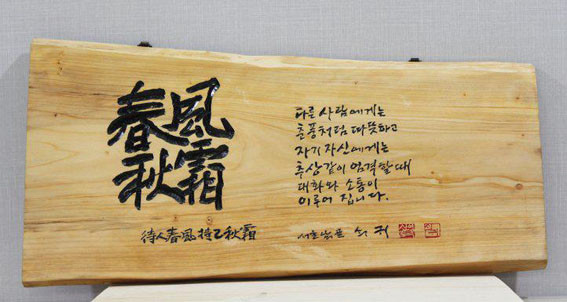 春風
秋霜
待人春風 持己秋霜
다른 사람에게는
춘풍처럼 따뜻하고
자기 자신에게는
추상같이 엄격할 때
대화와 소통이
이루어 집니다.